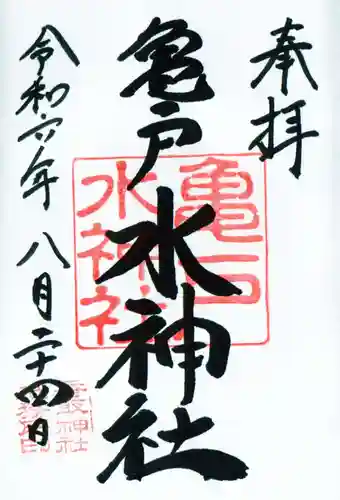 奉拝
亀戸水神社
亀戸
水神社
令和六年八月二十四日